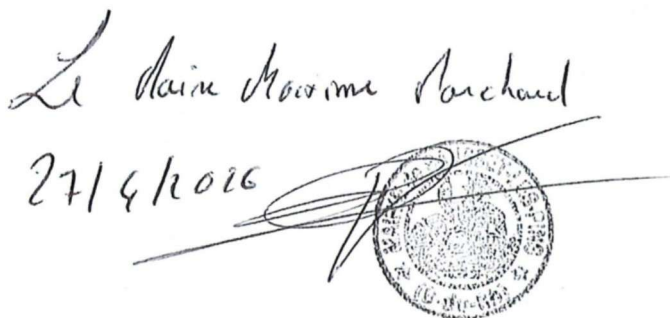 Le Maire Maxime Marchand
27/4/2026